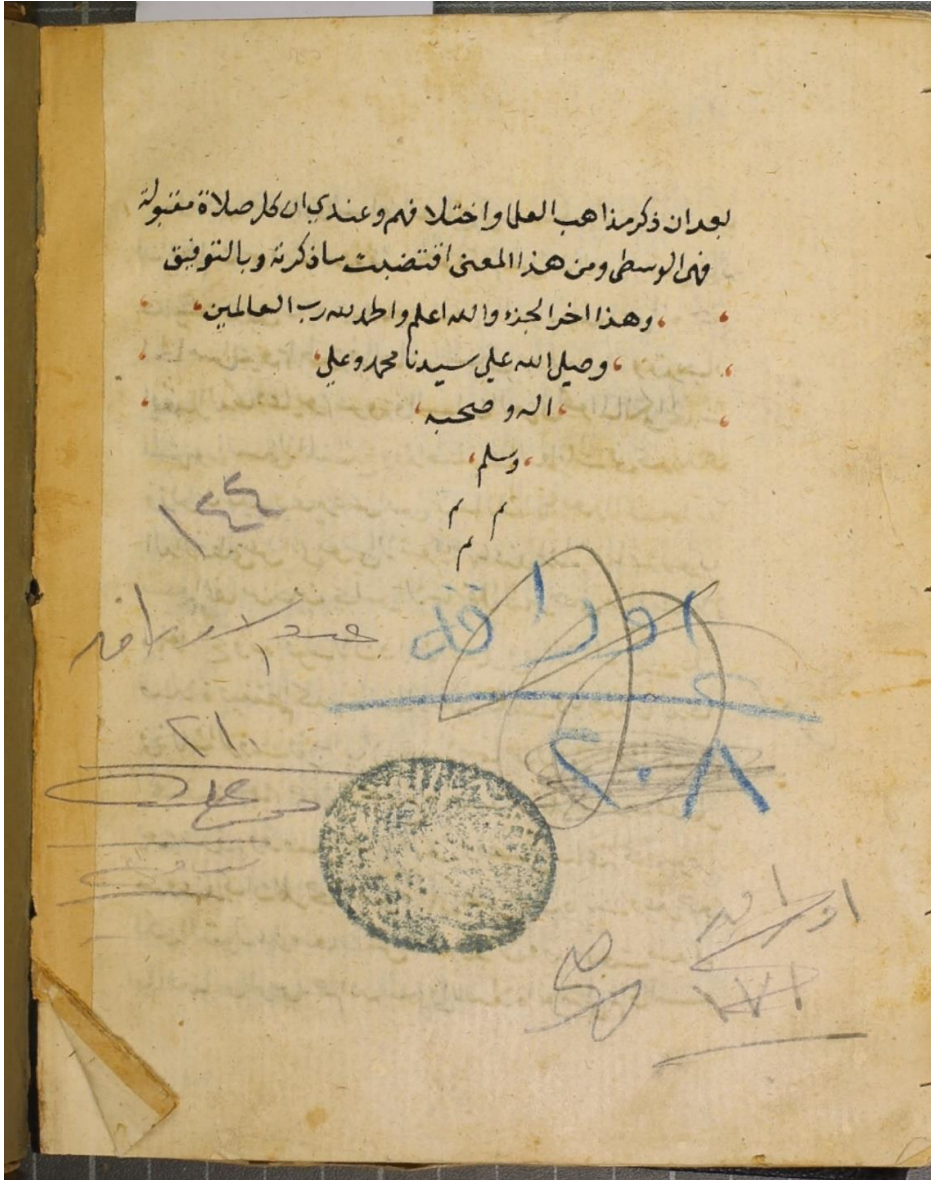 بعد ان ذكر مذاهب العلما واختلافهم وعندي ان كل صلاة مقبولة
فهى الوسطى ومن هذا المعنى اقتضبت ماذكرته وبالتوفيق
وهذا اخر الجزء والله اعلم والحمد لله رب العالمين
وصلى الله على سيدنا محمد وعلى
اله وصحبه
وسلم
م م
م
١٤٤
اوراقه
٢٠٨
عدد اوراقه
٢١٠
اوراقه
١٧١